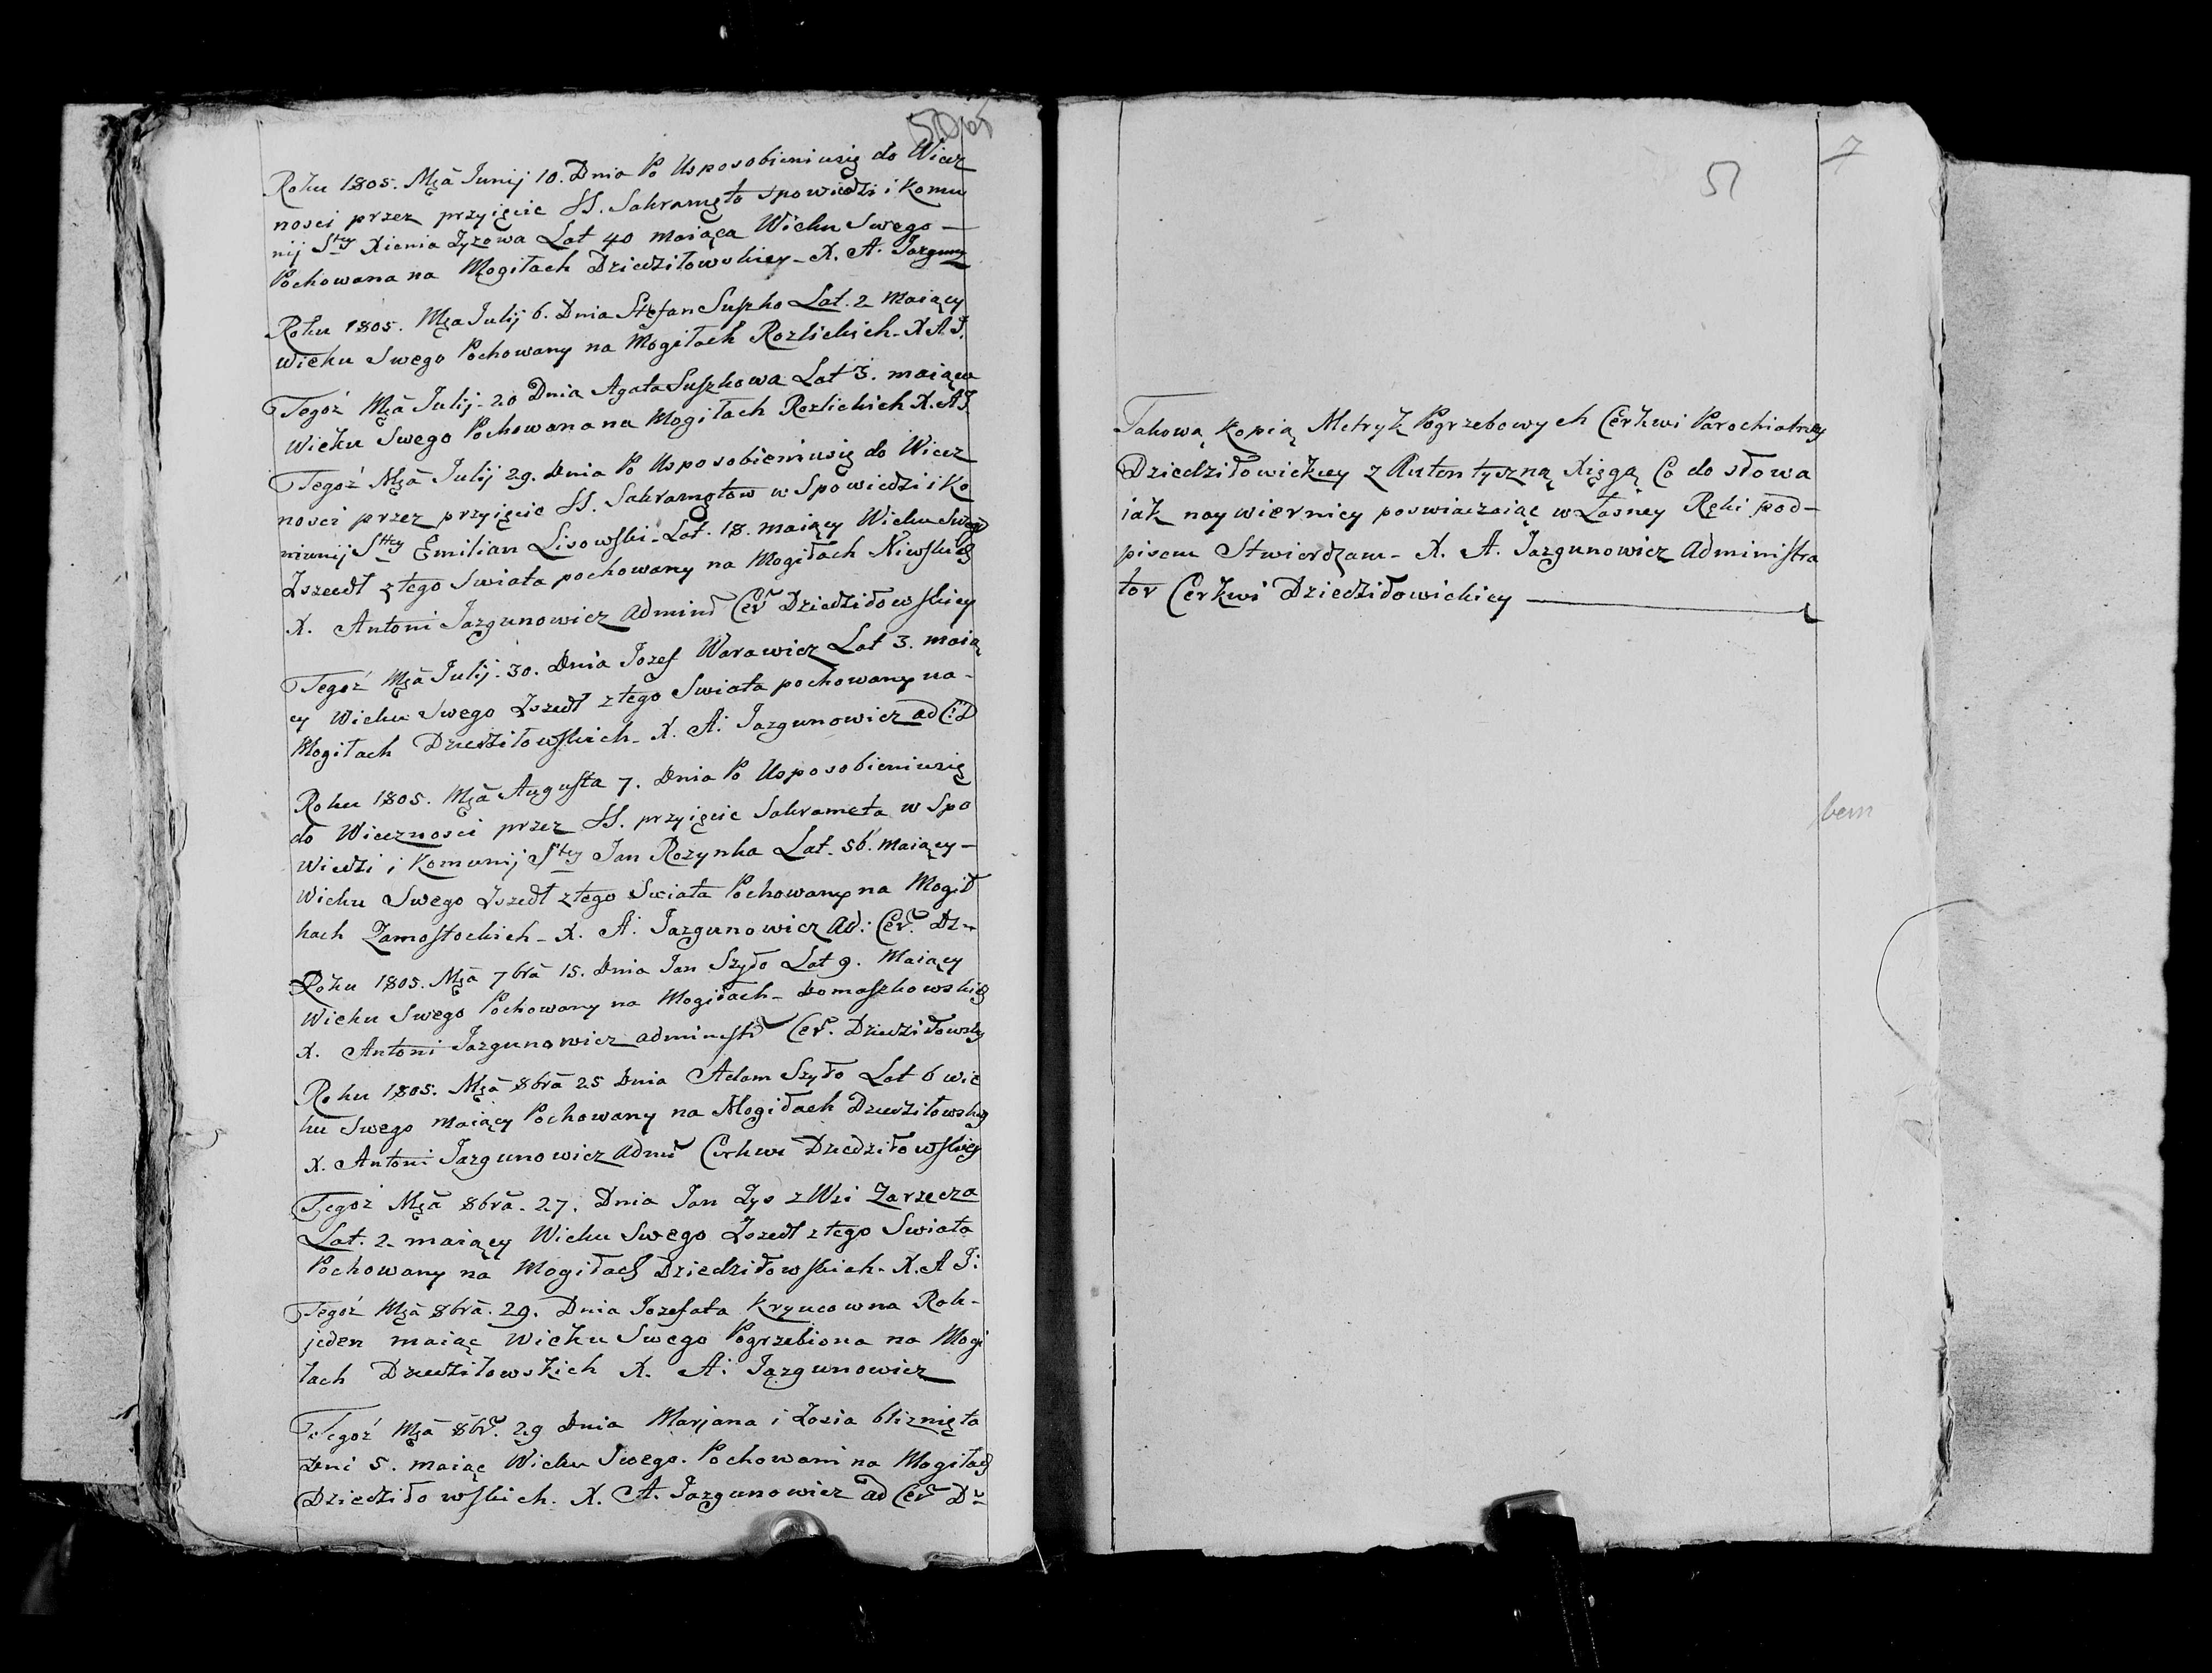 Roku 1805. Mca Junij 10. Dnia Po Usposobieniusię do Wiecz
nosci przez przyięcie SS. Sakramęto Spowiedzi i Komu
nij Stey Xienia Zyzowa Lat 40 maiąca Wieku Swego —
Pochowana na Mogiłach Dziedziłowskiey - X. A. Jazguny
Roku 1805. Mca Julij 6. Dnia Stefan Suszko Lat. 2 maiący
Wieku Swego Pochowany na Mogiłach Rozlickich - X A J.
Tegoż Mca Julij - 20 Dnia Agata Suszkowa Lat 3. maiąca
Wieku Swego Pochowana na Mogiłach Rozlickich X. A J.
Tegoż Mca Julij 29. Dnia Po Usposobieniusię do Wiecz
nosci przez przyięcie SS. Sakramętow w Spowiedzi i Ko
munij Stey Emilian Lisowski - Lat. 18. maiący Wieku Swego
Zszedł z tego Swiata pochowany na Mogiłach Niwskich
X. Antoni Jazgunowicz Admind Cer Dziedziłowskiey
Tegoż Mca Julij. 30. Dnia Jozef Warawicz Lat 3. maią
cy Wieku Swego Zszedł z tego Swiata pochowany na -
Mogiłach Dziedziłowskich - X. A. Jazgunowicz ad C: D
Roku 1805. Mca Augusta 7. Dnia Po Usposobieniusię
do Wiecznosci przez SS. przyięcie Sakrameta w Spo
wiedzi i Komunij Stey Jan Rozynka Lat. 56. maiący —
Wieku Swego Zszedł z tego Swiata Pochowany na Mogił
kach Zamostockich - X. A. Jazgunowicz Ad: Cer. Dz -
Roku 1805. Mca 7bra 15. Dnia Jan Szyło Lat 9. Maiący
Wieku Swego Pochowany na Mogiłach - Domaszkowskich
X. Antoni Jazgunowicz administr Cer. Dziedziłowsky
Roku 1805. Mca 8bra 25 Dnia Adam Szyło Lat 6 wie
ku Swego maiący Pochowany na Mogiłach Dziedziłowskich
X. Antoni Jazgunowicz Admi Cerkwi Dziedziłowskiey
Tegoż Mca 8bra. 27. Dnia Jan Zys z Wsi Zarzecza
Lat. 2 maiący Wieku Swego Zszedł z tego Swiata
Pochowany na Mogiłach Dziedziłowskich - X. A J:
Tegoż Mca 8bra. 29. Dnia Jozefata Krzucowna Rok -
jeden maiąc Wieku Swego Pogrzebiona na Mogi
łach Dziedziłowskich X. A. Jazgunowicz
Tegoż Mca 8br. 29 Dnia Marjana i Zosia bliznięta
Dni 5. maiąc Wieku Swego. Pochowani na Mogiłach
Dziedziłowskich. X. A. Jazgunowicz ad Cer Dz
51
7
Takową Kopią Metryk Pogrzebowych Cerkwi Parochialney
Dziedziłowickiey z Autentyczną Xięgą Co do słowa
iak naywierniey poswiaczaiąc własney Ręki pod-
pisem Stwierdzam - X. A. Jazgunowicz Administra
tor Cerkwi Dziedziłowickiey —